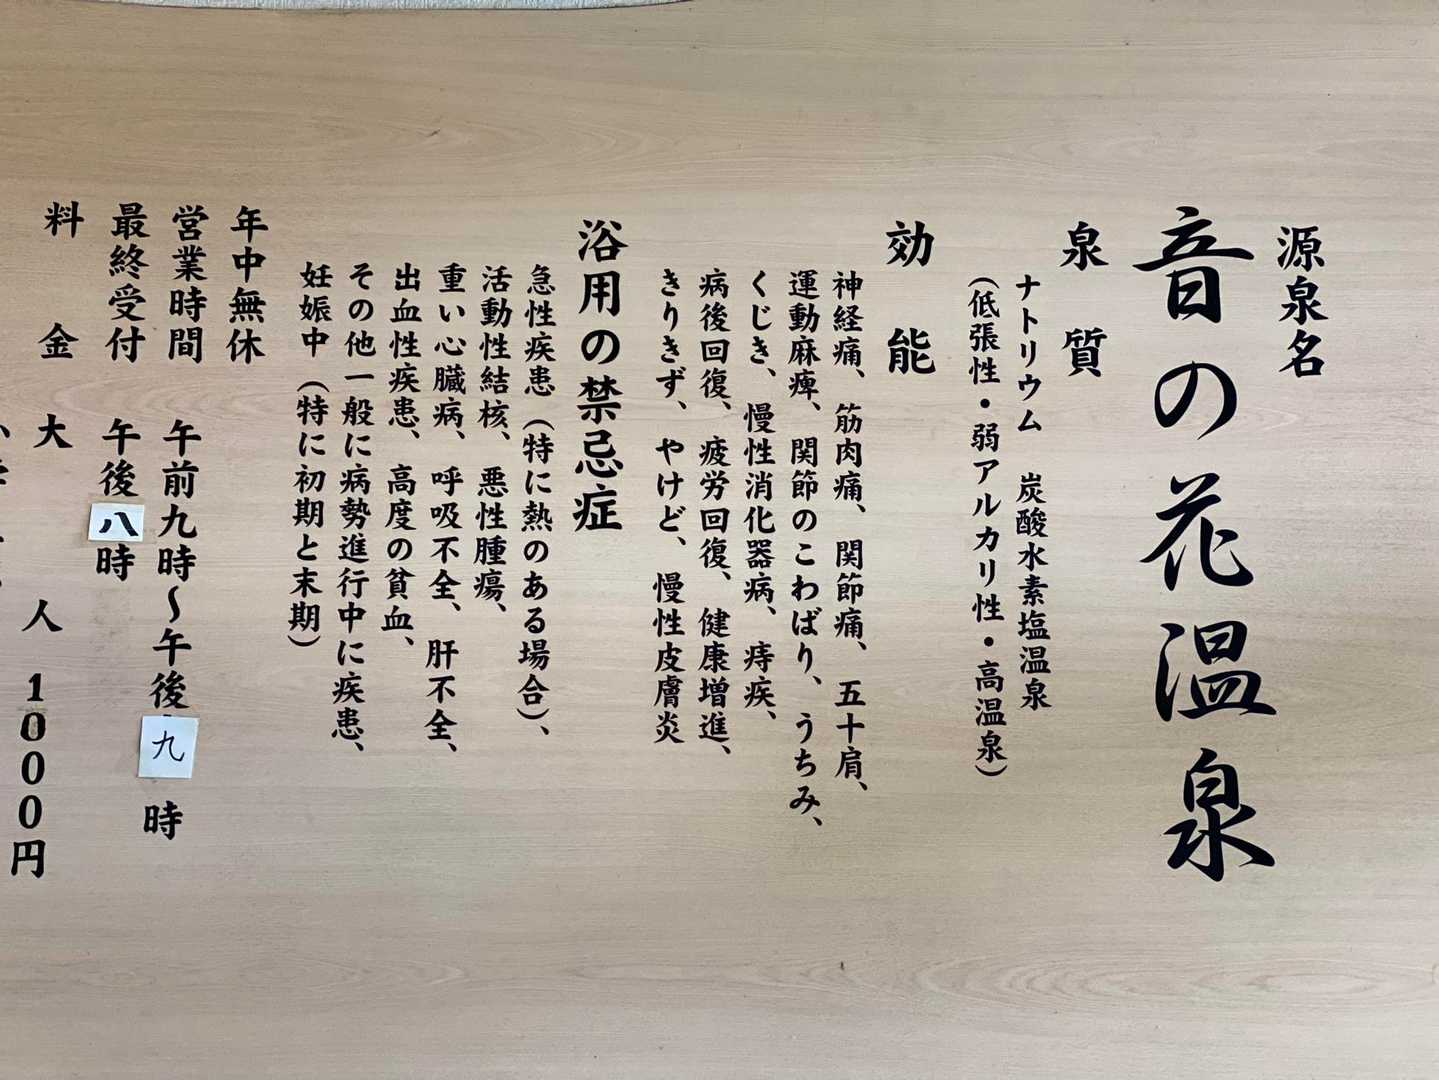 源泉名
音の花温泉
泉質
ナトリウム 炭酸水素塩温泉
(低張性・弱アルカリ性・高温泉)
効能
神経痛、筋肉痛、関節痛、五十肩、
運動麻痺、関節のこわばり、うちみ、
くじき、慢性消化器病、痔疾、
病後回復、疲労回復、健康増進、
きりきず、やけど、慢性皮膚炎
浴用の禁忌症
急性疾患(特に熱のある場合)、
活動性結核、悪性腫瘍、
重い心臓病、呼吸不全、肝不全、
出血性疾患、高度の貧血、
その他一般に病勢進行中に疾患、
妊娠中(特に初期と末期)
年中無休
営業時間 午前九時～午後九時
最終受付 午後八時
料金 大人 1000円